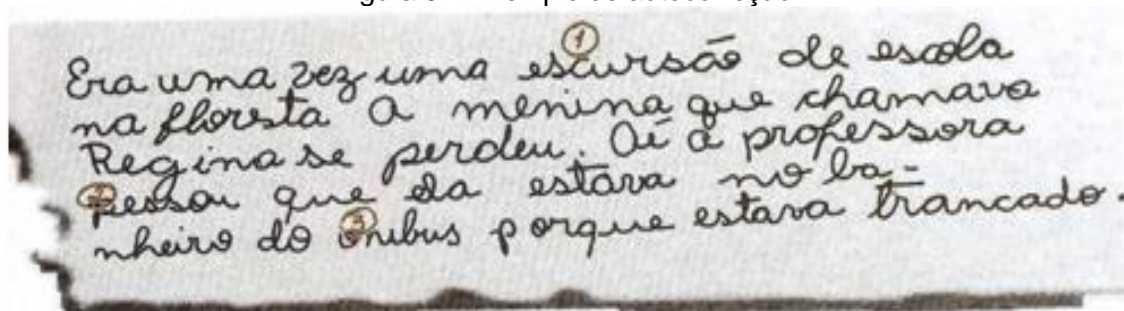 1
Era uma vez uma escursão de escola
na floresta a menina que chamava
Regina se perdeu. Aí a professora
2 pessou que ela estava no ba-
nheiro do 3 onibus porque estava trancado.